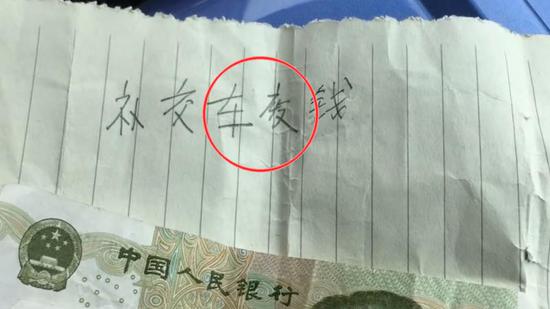 补交车废钱
中国人民银行